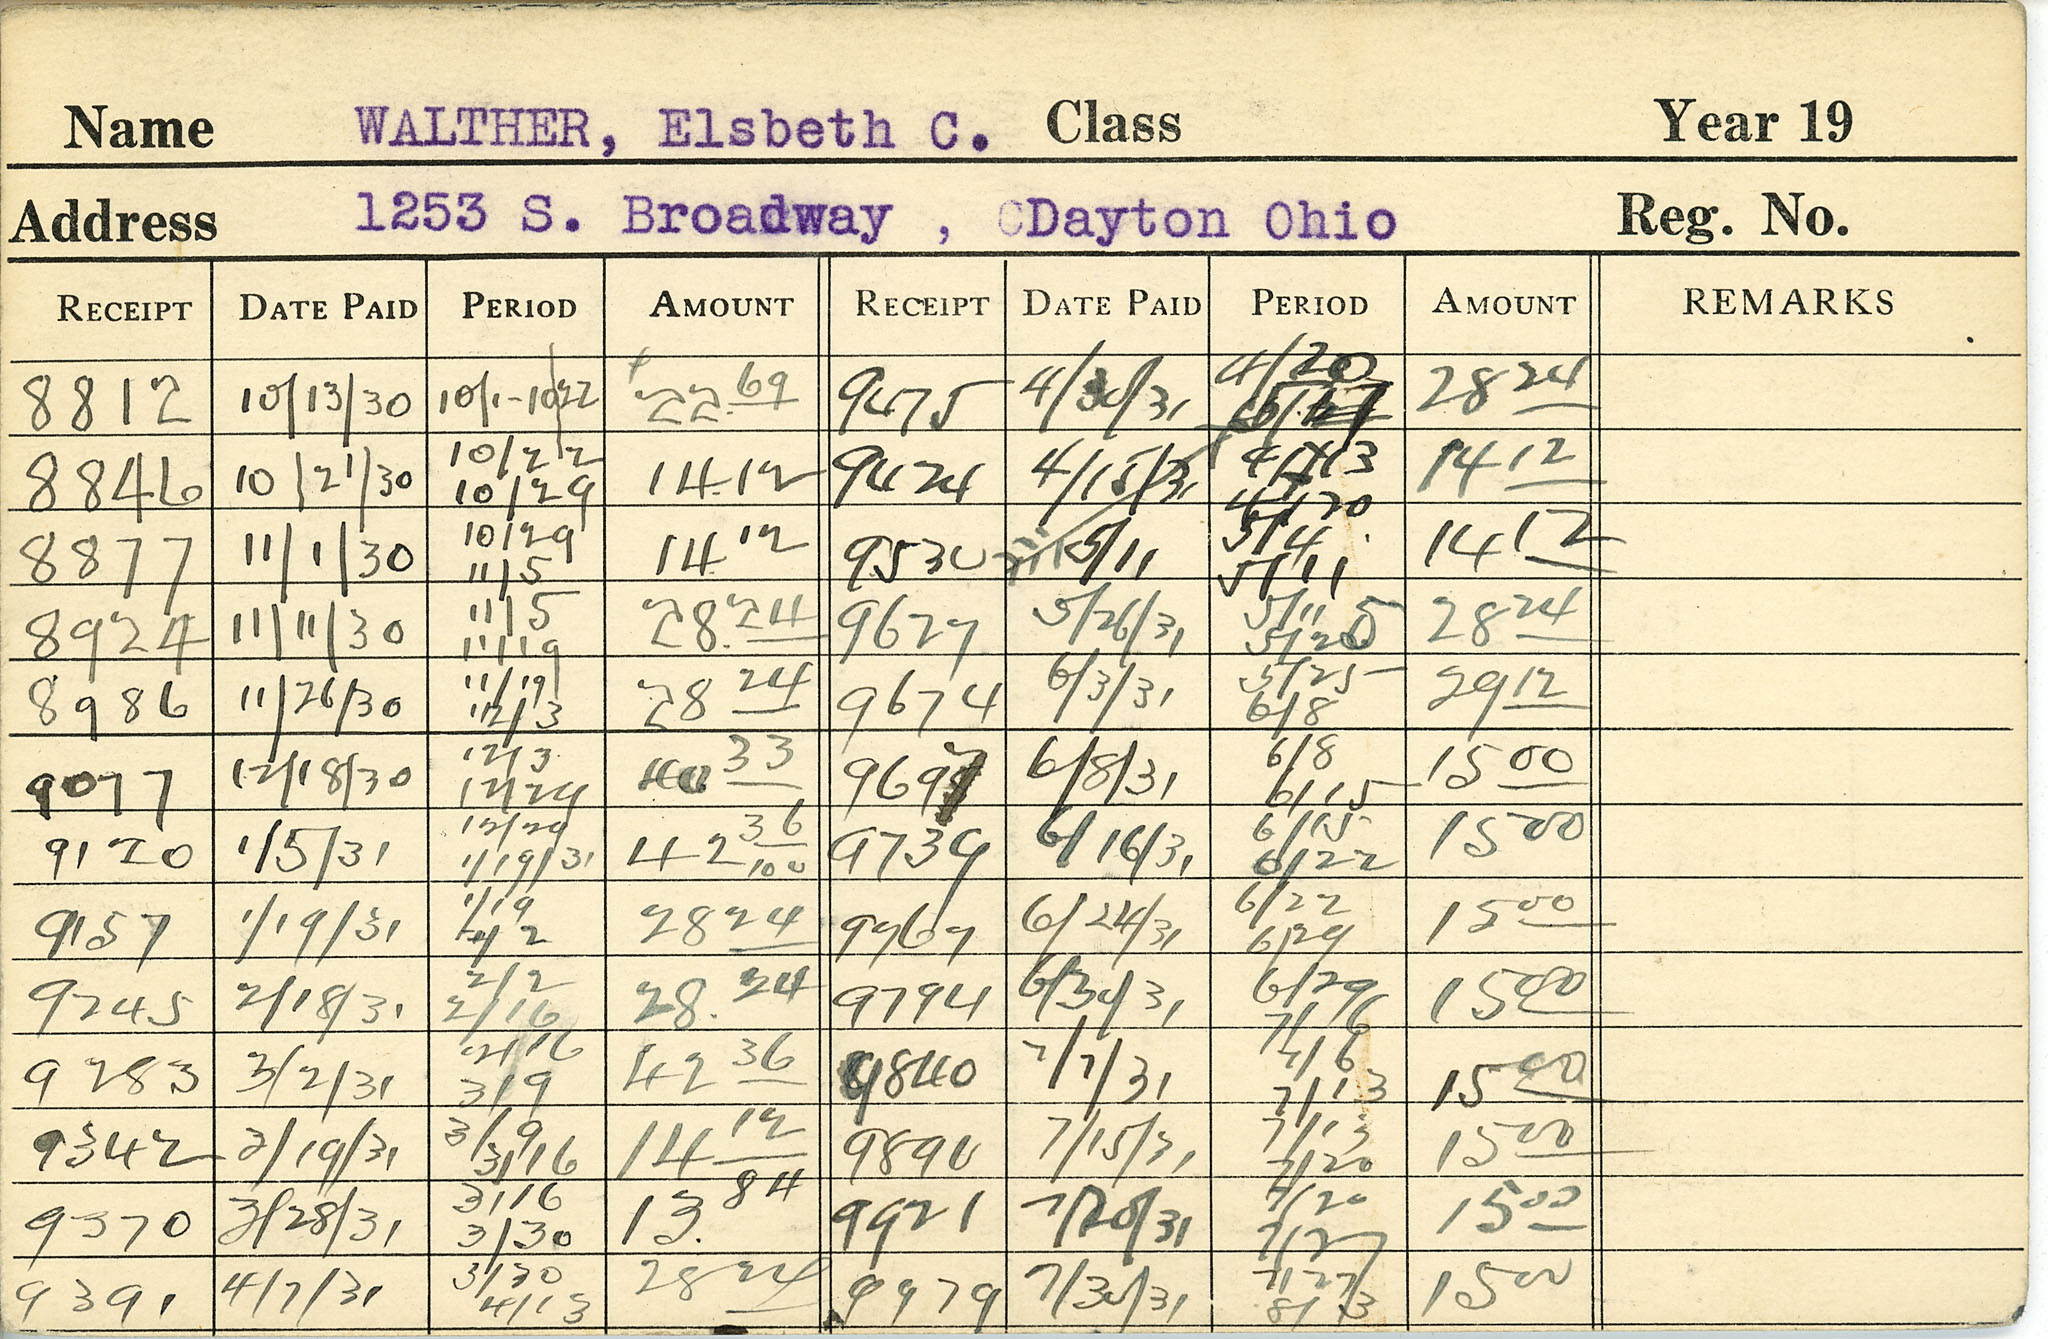 Name WALTHER, Elsbeth C. Class Year 19
Address 1253 S. Broadway , Dayton Ohio Reg. No.
RECEIPT DATE PAID PERIOD AMOUNT RECEIPT DATE PAID PERIOD AMOUNT REMARKS
8812 10/13/30 10/1-10/22 22.69 9475 4/30/31 4/20 28 24
8846 10/21/30 10/22 10/29 14.12 9424 4/15/31 4/13 4/20 14 12
8877 11/1/30 10/29 11/5 14.12 9530 5/11 5/4 5/11 14 12
8924 11/11/30 11/5 11/19 28.24 9627 5/26/31 5/11 5/25 28 24
8986 11/26/30 11/19 12/3 28 24 9674 6/3/31 5/25 6/8 29 12
9077 12/18/30 12/3 12/24 33 969 6/8/31 6/8 6/15 15 00
9120 1/5/31 12/29 1/19/31 42 36/100 9739 6/16/31 6/15 6/22 15 00
9157 1/19/31 1/19 2/2 28 24 9767 6/24/31 6/22 6/29 15 00
9245 2/18/31 2/2 2/16 28.24 9794 6/30/31 6/29 7/6 15 00
9283 3/2/31 2/16 3/9 42 36 9840 7/7/31 7/6 7/13 15 00
9342 3/19/31 3/9 3/16 14 12 9890 7/15/31 7/13 7/20 15 00
9370 3/28/31 3/16 3/30 13.84 9921 7/20/31 7/20 7/27 15 00
9391 4/7/31 3/30 4/13 28 24 9979 7/30/31 7/27 8/3 15 00